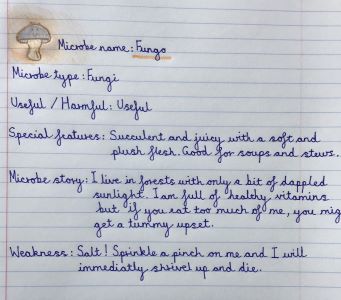 Microbe name: Fungo
Microbe type: Fungi
Useful / Harmful: Useful
Special features: Succulent and juicy with a soft and
plush flesh. Good for soups and stews.
Microbe story: I live in forests with only a bit of dappled
sunlight. I am full of healthy vitamins
but if you eat too much of me, you mig
get a tummy upset.
Weakness: Salt! Sprinkle a pinch on me and I will
immediatly shrivel up and die.